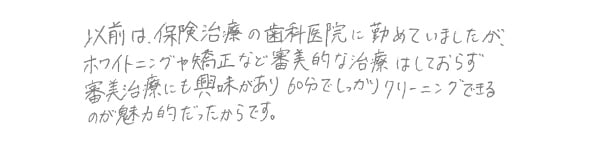 以前は、保険治療の歯科医院に勤めていましたが、
ホワイトニングや矯正など審美的な治療はしておらず
審美治療にも興味があり60分でしっかりクリーニングできる
のが魅力的だったからです。